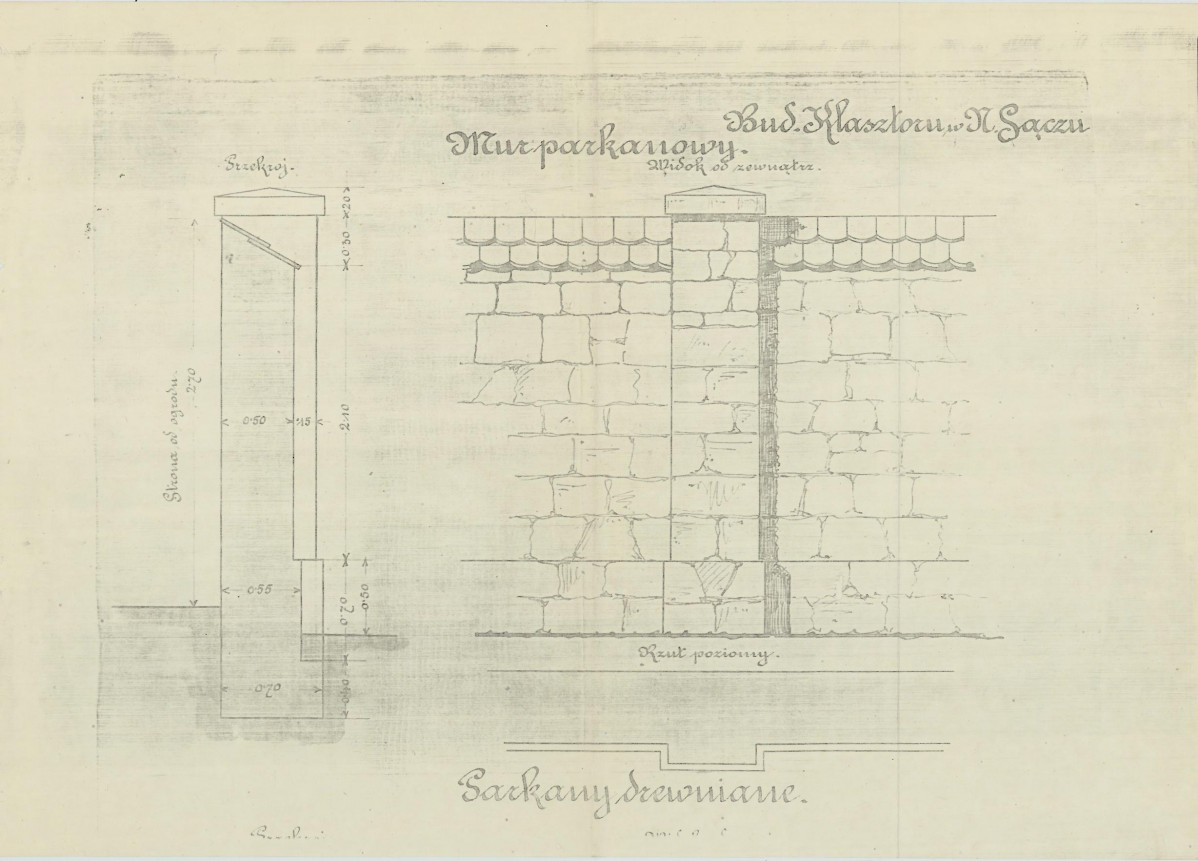 Bud. Klasztoru w N. Sączu
Mur parkanowy.
Widok od zewnątrz.
Przekrój.
20
0·30
Strona od ogrodu.
2·70
0·50
·15
2·10
0·55
0·70
0·50
0·70
0·40
Rzut poziomy.
Parkany drewniane.